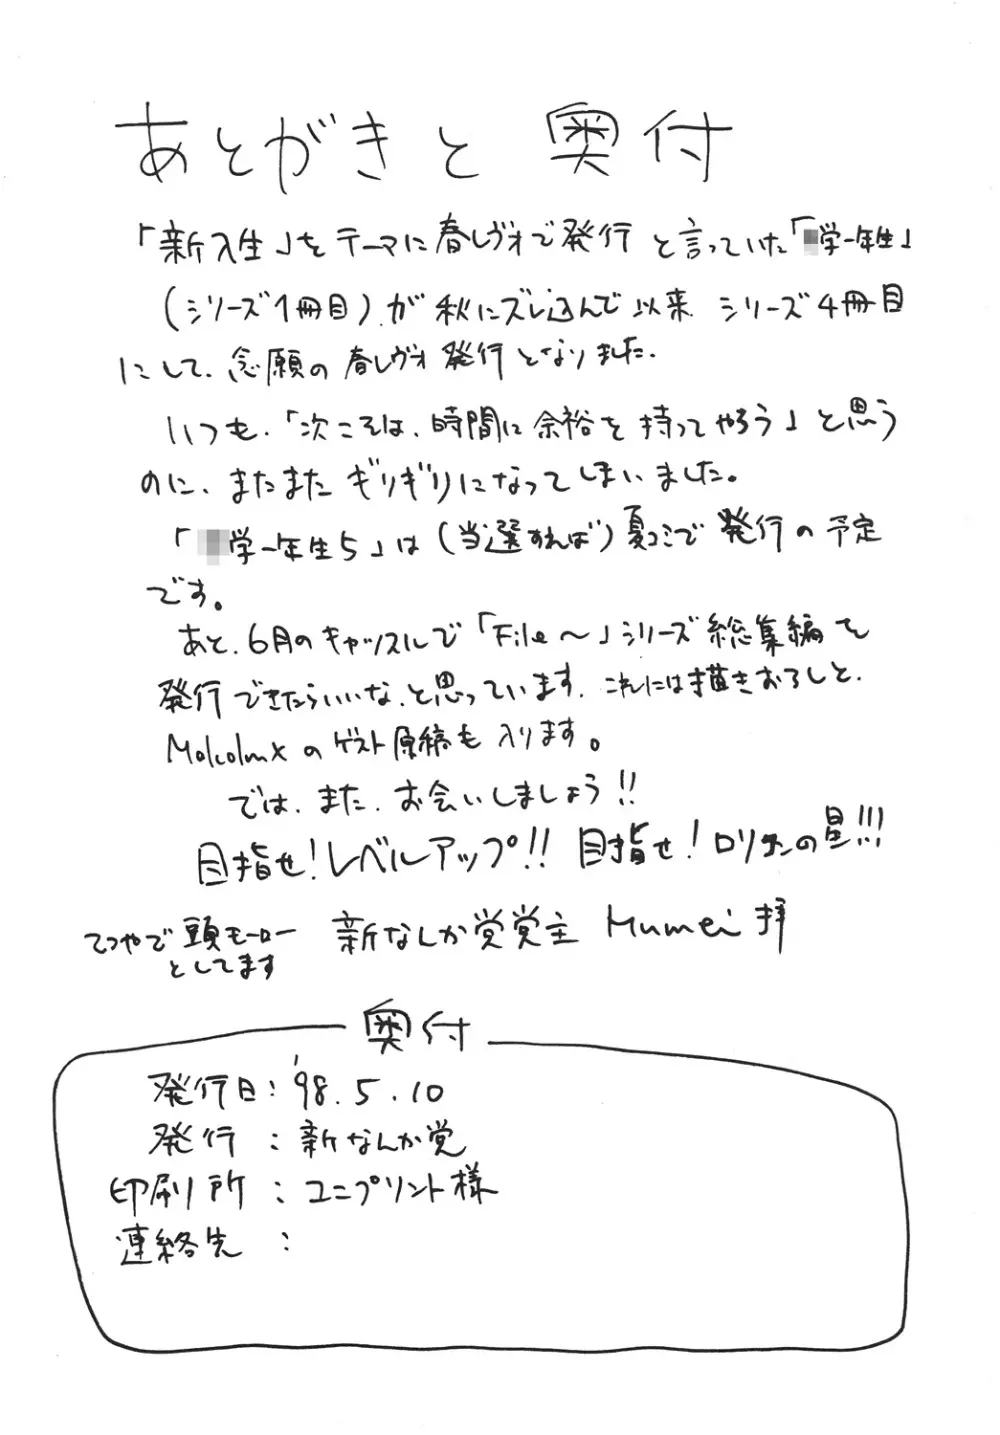 あとがきと 奥付
「新入生」をテーマに春レヴォで発行と言っていた「学一年生」
(シリーズ1冊目)が秋にズレ込んで以来、シリーズ4冊目
にして、念願の春レヴォ発行となりました.
いつも、「次こそは、時間に余裕を持ってやろう」と思う
のに、またまたギリギリになってしまいました。
「学一年生5」は(当選すれば)夏コミで発行の予定
です。
あと、6月のキャッスルで「File〜」シリーズ総集編を
発行できたらいいな、と思っています. これには描きおろしと、
Malcolmxのゲスト原稿も入ります。
では、また、お会いしましょう!!
目指せ!レベルアップ!! 目指せ!ロリータンの星!!!
てつやで頭モーロー
としてます
新なんか党党主 Mumei 拝
奥付
発行日:'98.5.10
発行 : 新なんか党
印刷所 : ユニプリント様
連絡先 :